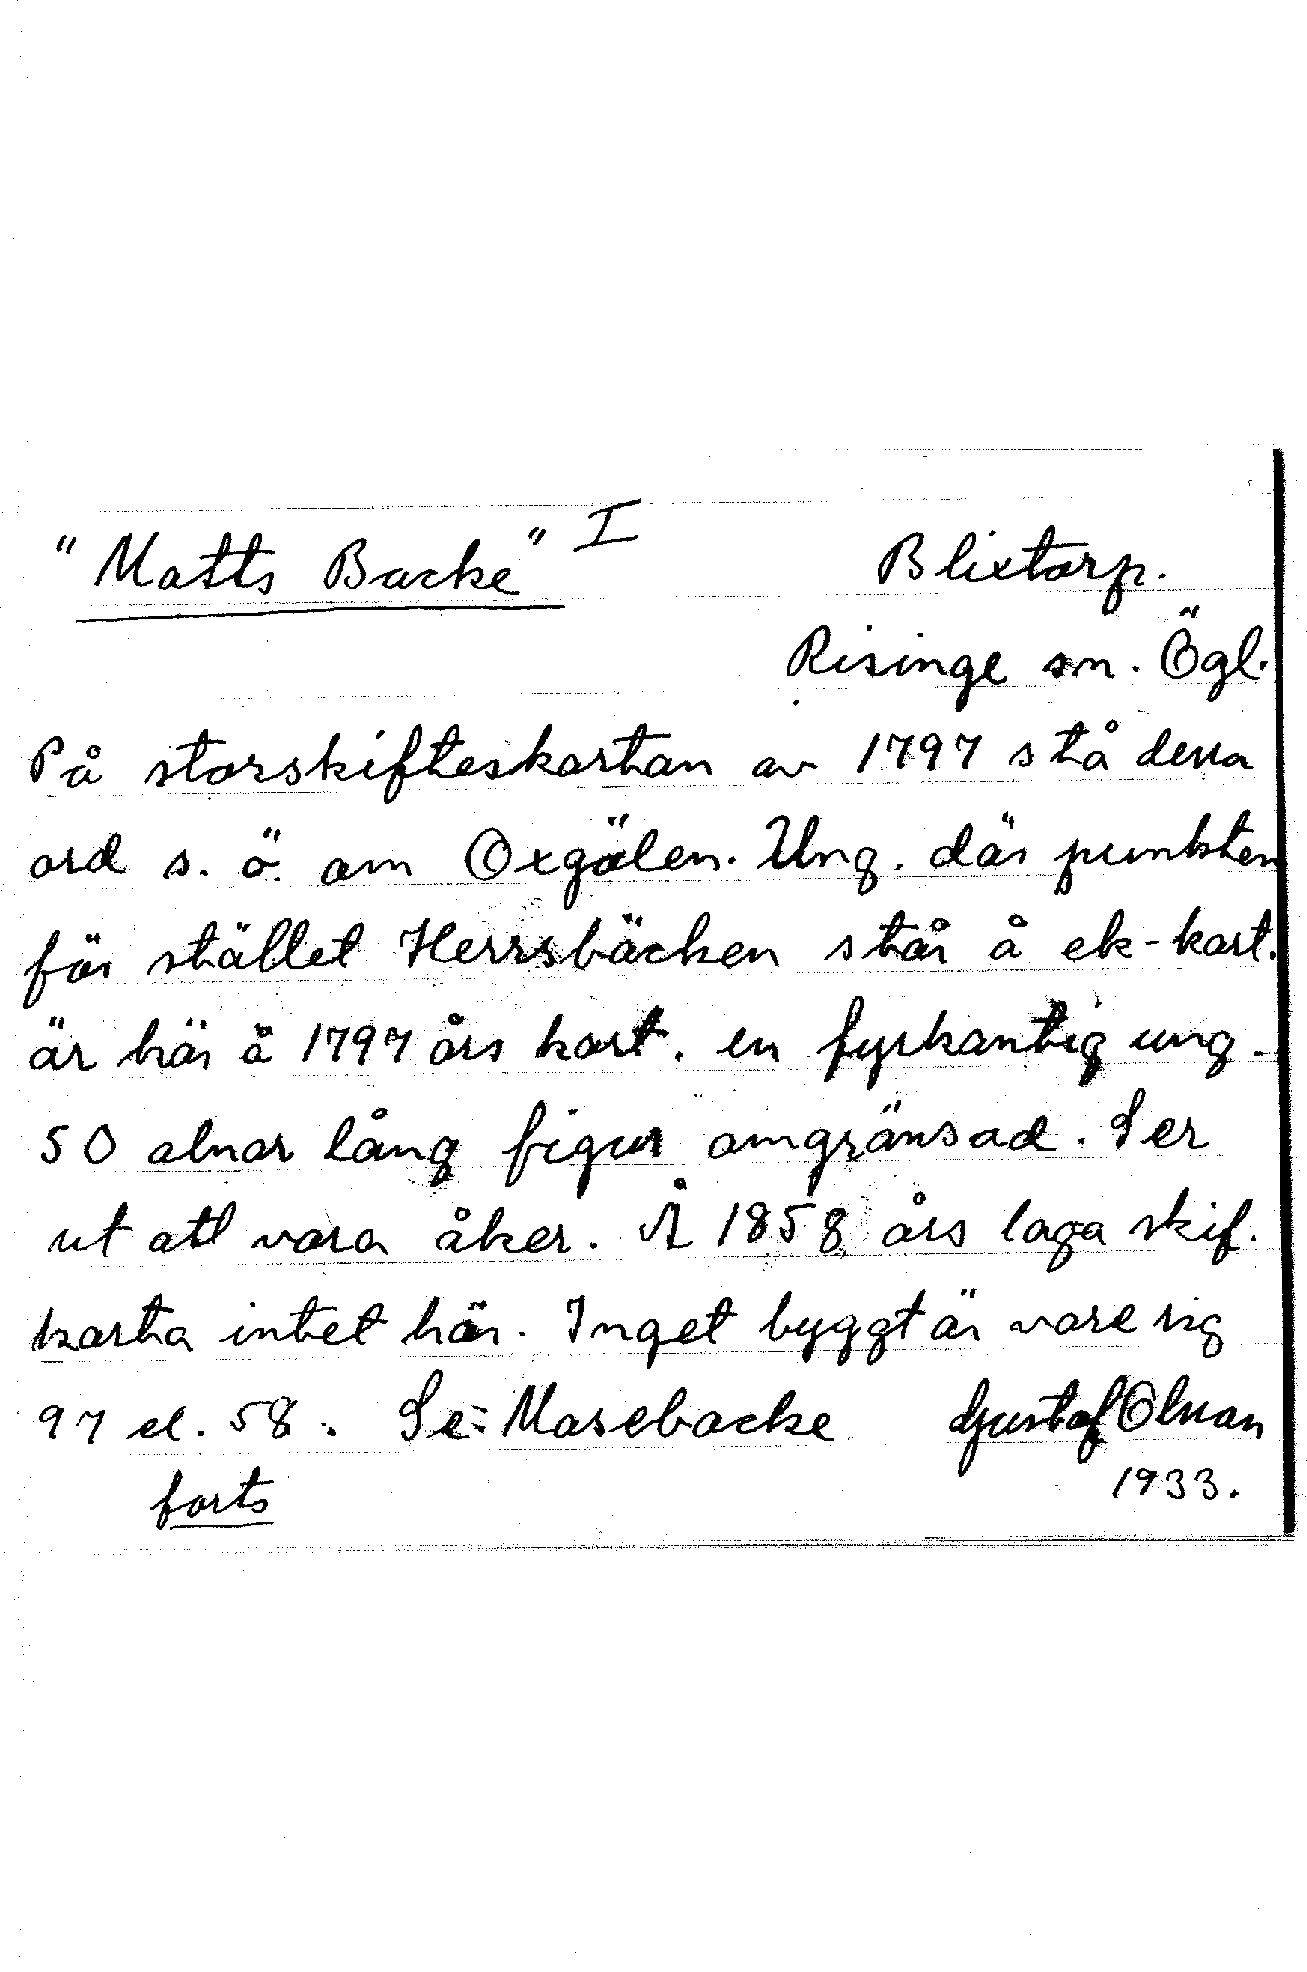 "Matts Backe" I
Blixtorp.
Risinge sn. Ögl.
På storskifteskartan av 1797 stå dessa
ord s. ö. om Oxgölen. Ung. där punkten
för stället Herrsbäcken står å ek-kart.
är här å 1797 års kart. en fyrkantig ung.
50 alnar lång figur omgränsad. Ser
ut att vara åker. Å 1858 års laga skif.
karta intet här. Inget byggt är vare sig
97 el. 58. Se: Masebacke Gustaf Olsson
forts 1933.